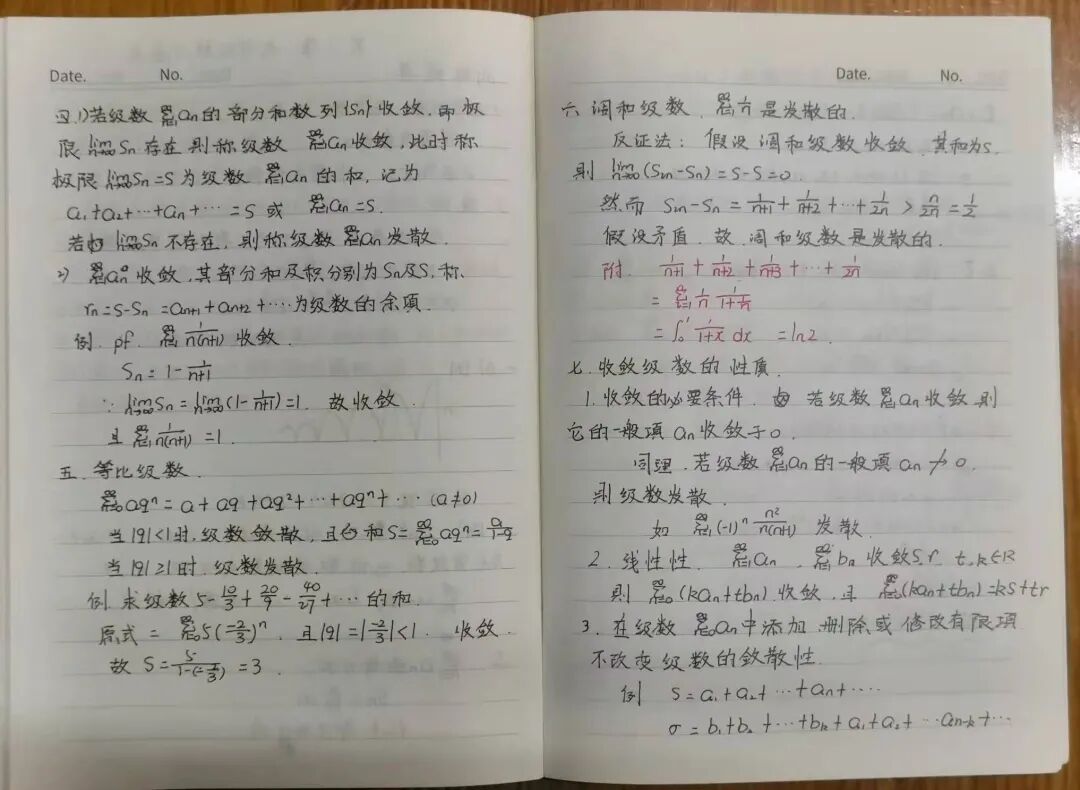 Date. No.
四.1)若级数 ∑_{n=1}^∞ an的部分和数列{Sn}收敛,即极
限 lim_{n→∞} Sn存在则称级数 ∑_{n=1}^∞ an收敛,此时称
极限 lim_{n→∞} Sn=S为级数 ∑_{n=1}^∞ an的和,记为
a₁+a₂+⋯+an+⋯=S或 ∑_{n=1}^∞ an=S.
若 lim_{n→∞} Sn不存在,则称级数 ∑_{n=1}^∞ an发散.
2) ∑_{n=1}^∞ an收敛,其部分和及积分别为Sn及S,称.
rn=S-Sn=an+1+an+2+⋯为级数的余项.
例. pf. ∑_{n=1}^∞ 1/n(n+1) 收敛.
Sn=1-1/(n+1)
∵ lim_{n→∞} Sn=lim_{n→∞}(1-1/(n+1))=1. 故收敛.
且 ∑_{n=1}^∞ 1/n(n+1)=1.
五.等比级数.
∑_{n=0}^∞ aqⁿ=a+aq+aq²+⋯+aqⁿ+⋯(a≠0)
当|q|<1时,级数敛散,且和S=∑_{n=0}^∞ aqⁿ=a/(1-q)
当|q|≥1时.级数发散.
例.求级数5-10/3+20/9-40/27+⋯的和.
原式=∑_{n=0}^∞ 5(-2/3)ⁿ. 且|q|=|-2/3|<1. 收敛.
故S=5/(1-(-2/3))=3.
Date. No.
六.调和级数. ∑_{n=1}^∞ 1/n是发散的.
反证法:假设调和级数收敛.其和为S.
则 lim_{n→∞}(S2n-Sn)=S-S=0.
然而 S2n-Sn=1/(n+1)+1/(n+2)+⋯+1/2n>n/2n=1/2
假设矛盾.故.调和级数是发散的.
附. 1/(n+1)+1/(n+2)+1/(n+3)+⋯+1/2n
=∑_{i=1}^n 1/n 1/(1+i/n)
=∫₀¹ 1/(1+x) dx =ln2.
七.收敛级数的性质.
1.收敛的必要条件. 若级数 ∑_{n=1}^∞ an收敛,则
它的一般项an收敛于0.
同理.若级数 ∑_{n=1}^∞ an的一般项an↛0.
则级数发散.
如 ∑_{n=1}^∞(-1)ⁿ n²/n(n+1) 发散.
2.线性性. ∑_{n=1}^∞ an. ∑_{n=1}^∞ bn收敛S,r. t,k∈R
则 ∑_{n=0}^∞(kan+tbn)收敛.且 ∑_{n=0}^∞(kan+tbn)=kS+tr
3.在级数 ∑_{n=0}^∞ an中添加.删除或修改有限项
不改变级数的敛散性.
例 S=a₁+a₂+⋯+an+⋯
σ=b₁+b₂+⋯+bk+a₁+a₂+⋯an-k+⋯